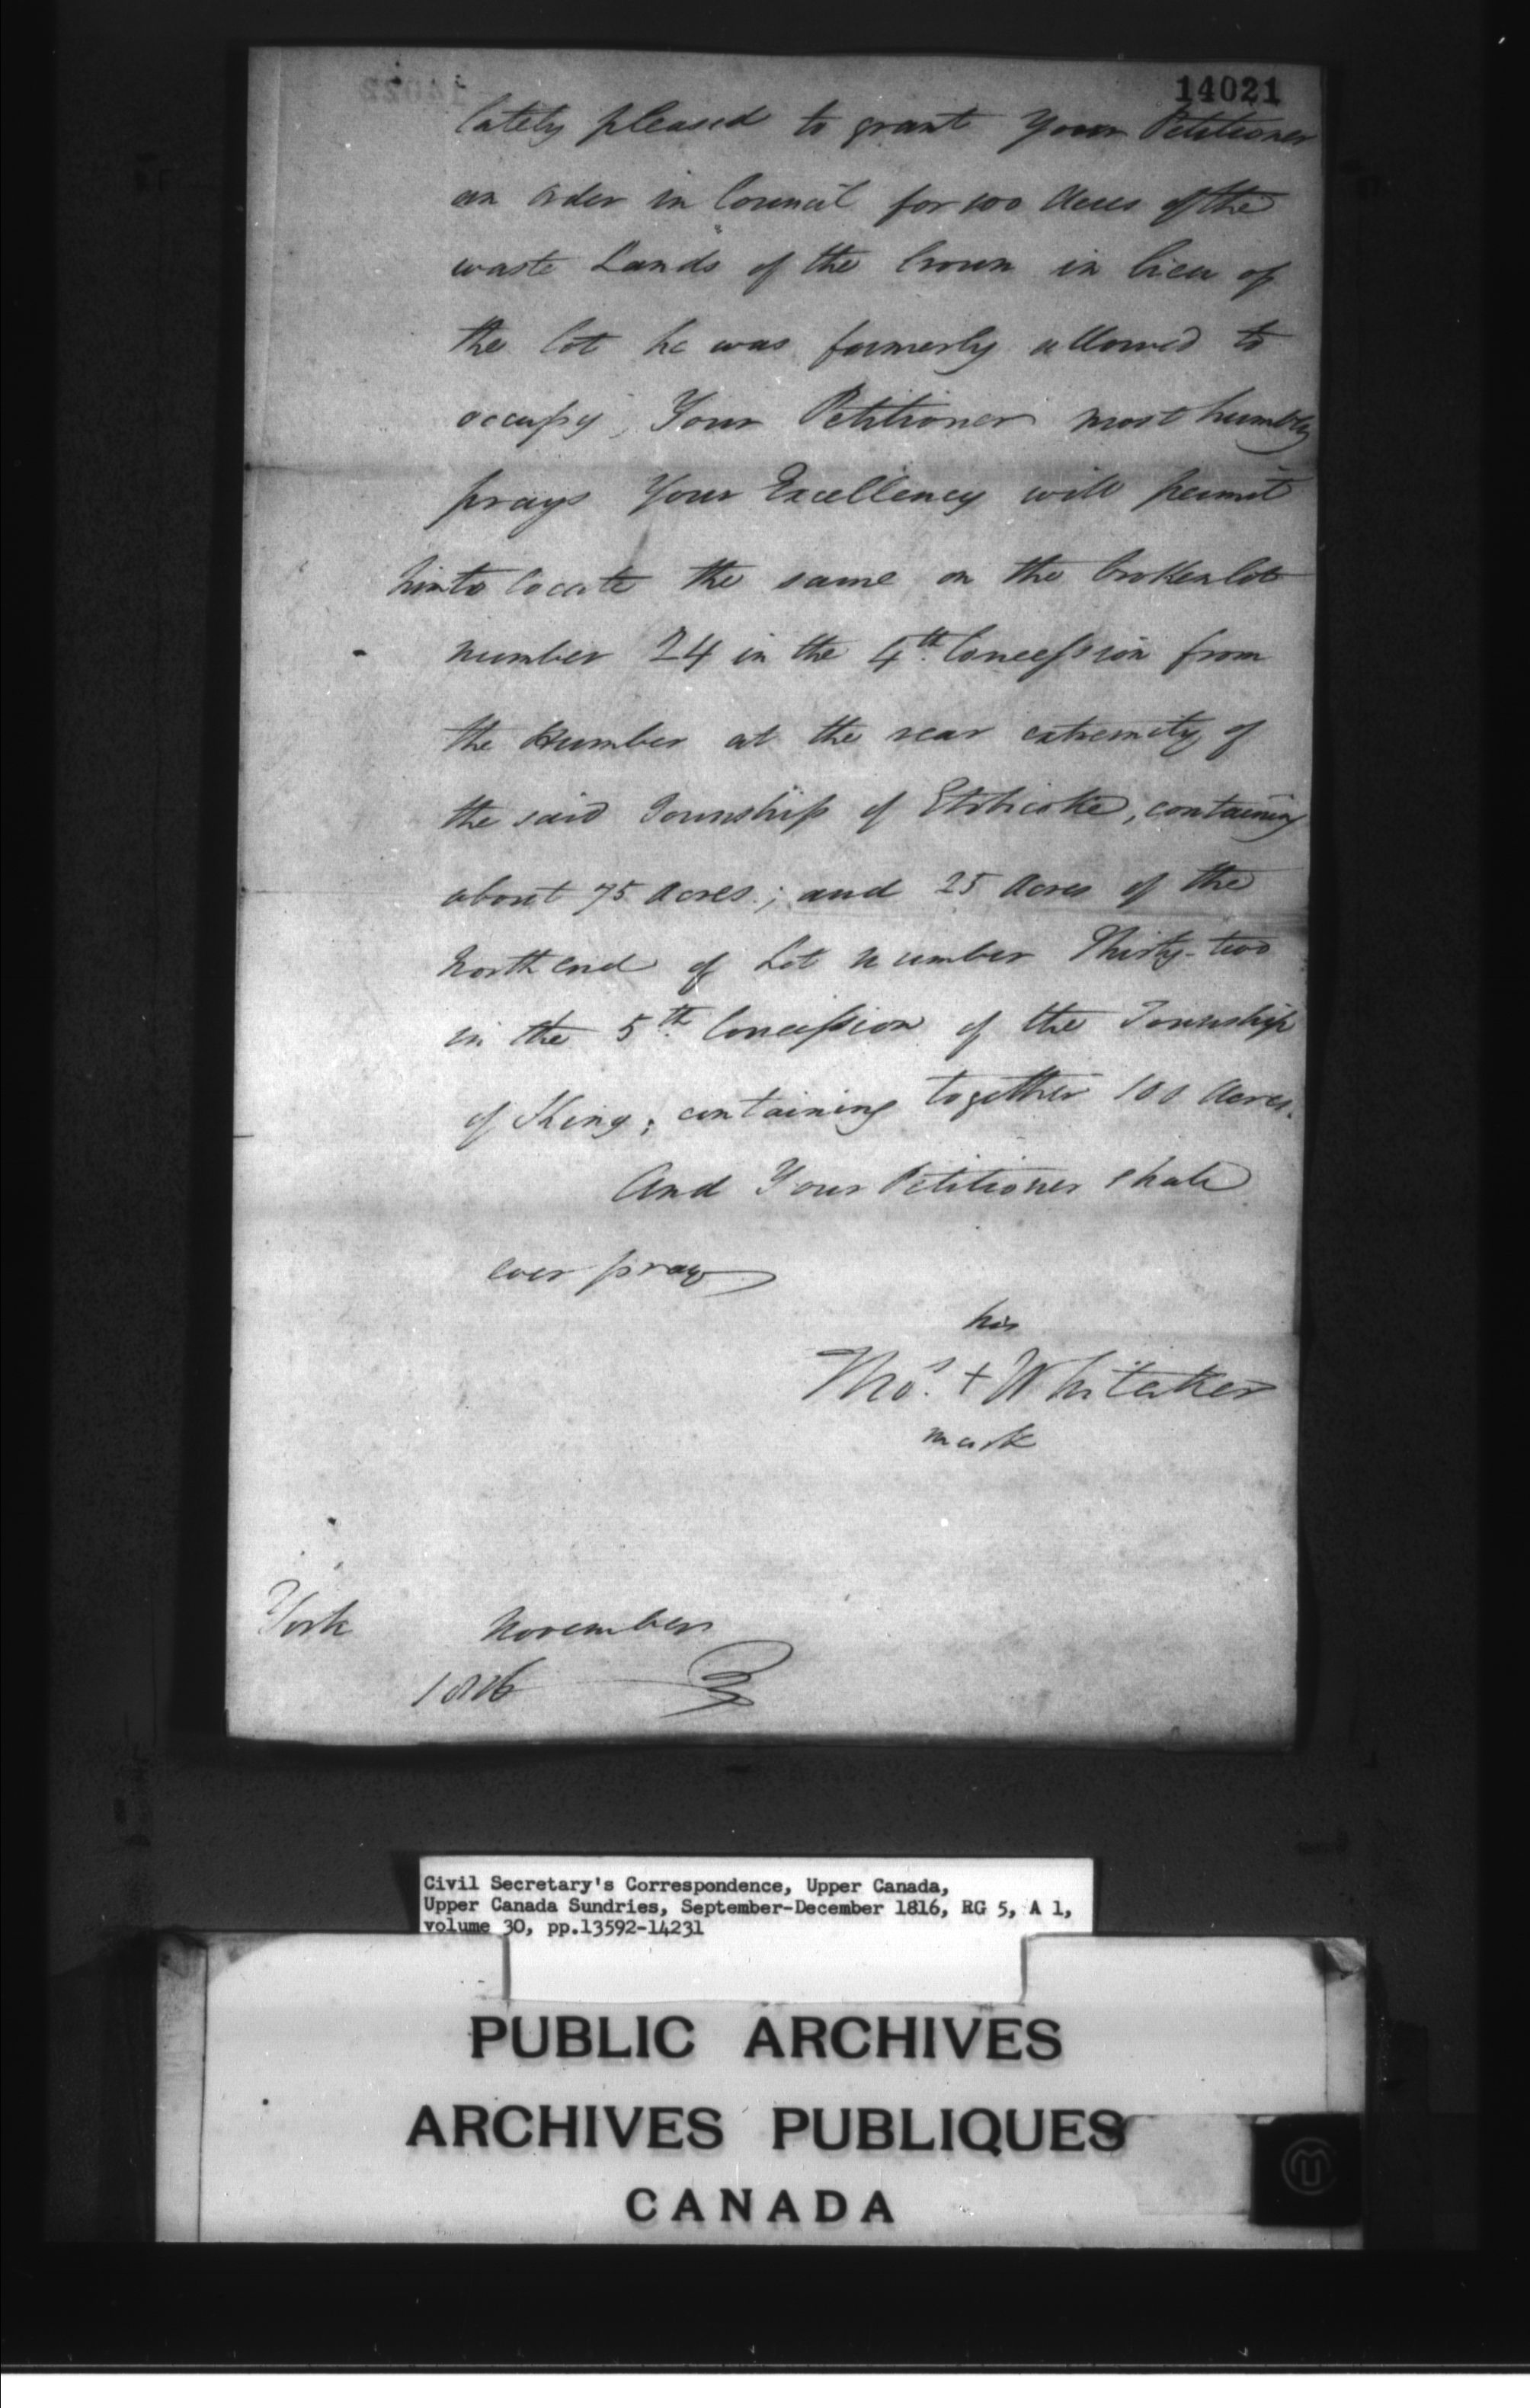 14021
lately pleased to grant Your Petitioner
an order in Council for 100 Acres of the
waste Lands of the Crown in lieu of
the lot he was formerly allowed to
occupy; Your Petitioner most humbly
prays Your Excellency will permit
him to locate the same on the broken lot
number 24 in the 4th. Concession from
the Humber at the rear extremity of
the said Township of Etobicoke, containing
about 75 Acres; and 25 Acres of the
North end of Lot number Thirty-two
in the 5th. Concession of the Township
of King; containing together 100 Acres.
And Your Petitioner shall
ever pray
his
Thos. + Whitaker
mark
York November
1816
Civil Secretary's Correspondence, Upper Canada,
Upper Canada Sundries, September-December 1816, RG 5, A 1,
volume 30, pp.13592-14231
PUBLIC ARCHIVES
ARCHIVES PUBLIQUES
CANADA